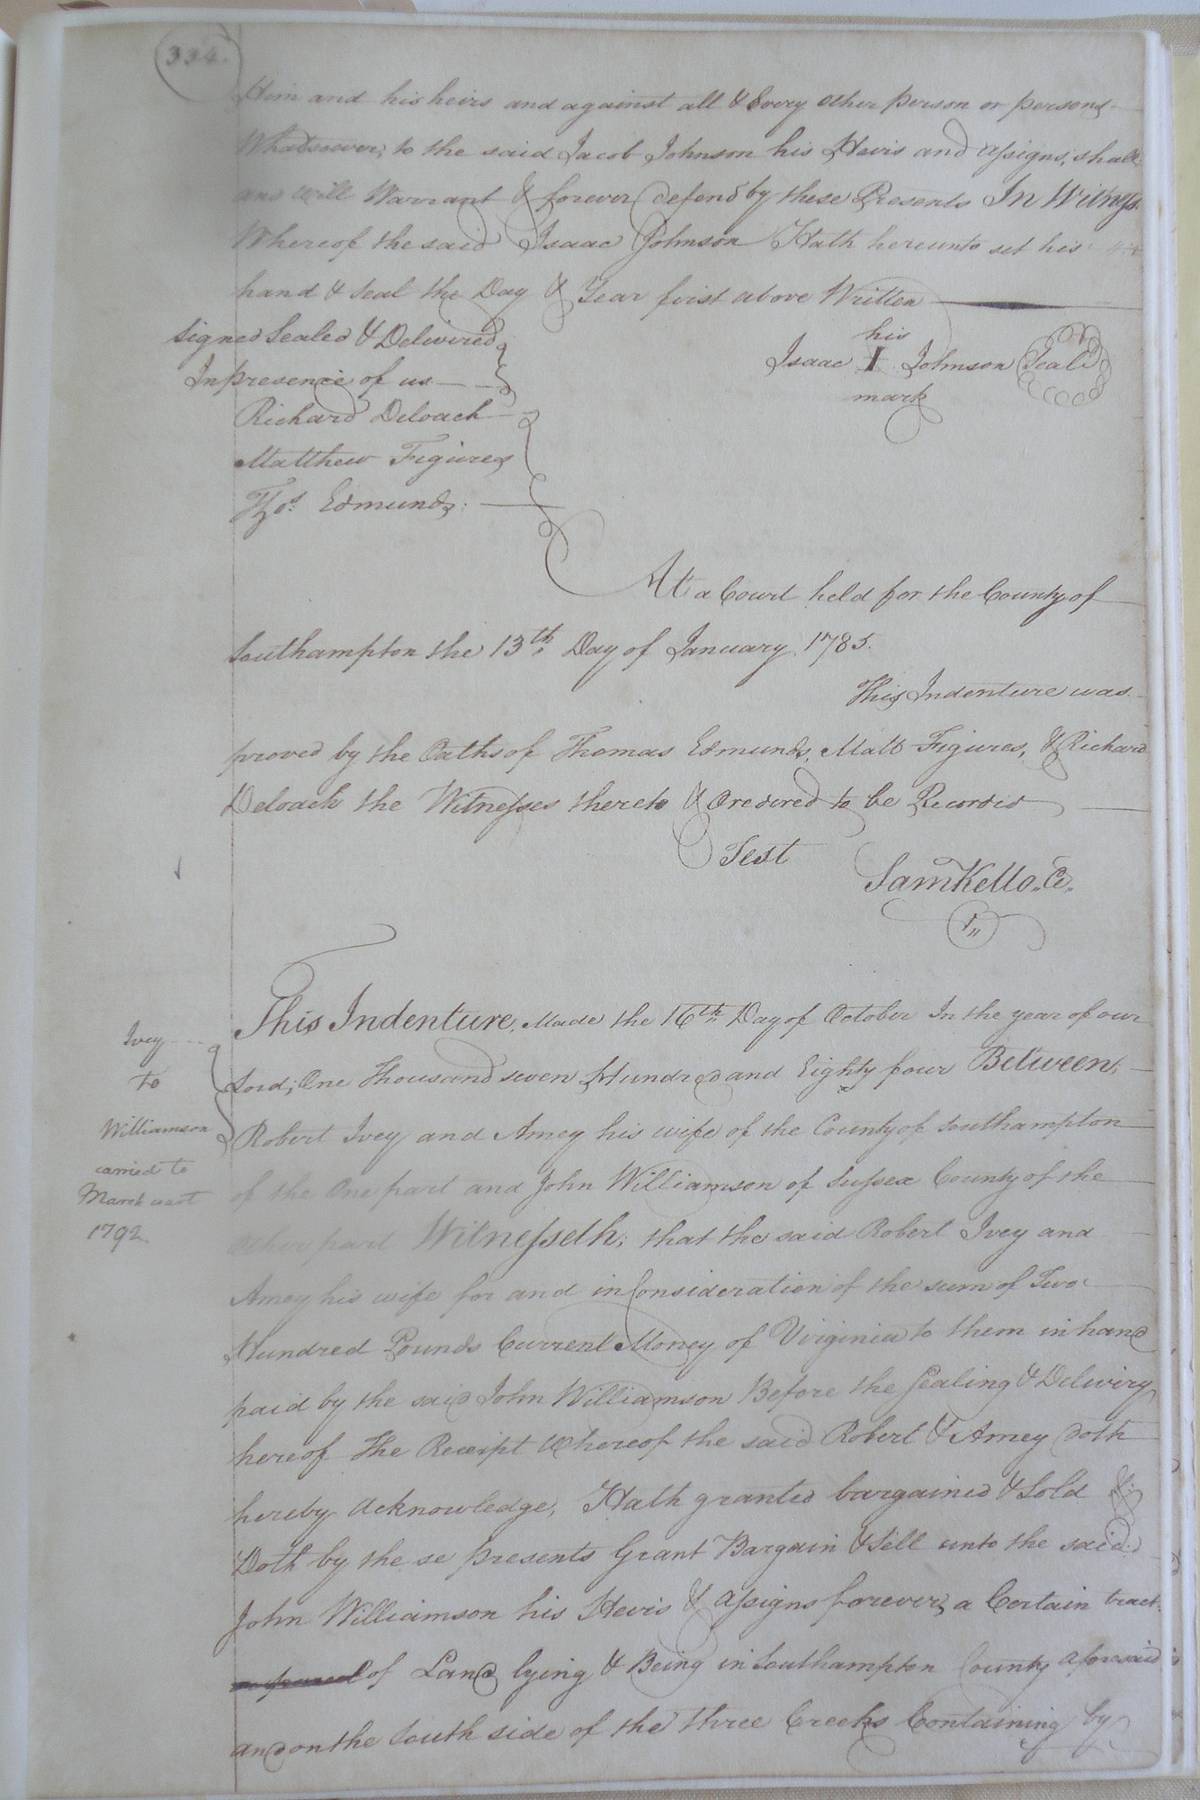 334.
Him and his heirs and against all & Every other person or persons
Whatsoever; to the said Jacob Johnson his Heris and assigns, shall
and will Warrant & forever defend by these Presents In Witness
Whereof the said Isaac Johnson Hath hereunto set his
hand & Seal the Day & Year first above Written
Signed Sealed & Delivered
In presence of us
Richard Deloach
Matthew Figures
Thos. Edmunds.
his
Isaac I Johnson Seal
mark
At a Court held for the County of
Southampton the 13th. Day of January 1785.
This Indenture was
proved by the Oaths of Thomas Edmunds, Matt Figures, & Richard
Deloach the Witnesses thereto & Oredered to be Recorded
Test
Sam Kello. C.
This Indenture, Made the 16th. Day of October In the year of our
Lord; One Thousand seven Hundred and Eighty four Between,
Robert Ivey and Amey his wife of the County of Southampton
of the One part and John Williamson of Sussex County of the
other part Witnesseth; that the said Robert Ivey and
Amey his wife for and in Consideration of the sum of Two
Hundred Pounds Current Money of Virginia to them in hand
paid by the said John Williamson Before the Sealing & Deliviry
hereof The Receipt Whereof the said Robert & Amey doth
hereby Acknowledge, Hath granted bargained & Sold &
Doth by the se presents Grant Bargain & Sell unto the said
John Williamson his Heris & Assigns forever, a Certain tract
of Land lying & Being in Southampton County aforesaid
and on the South side of the three Creeks Containing by
Ivey
to
Williamson
carried to
March court
1792.